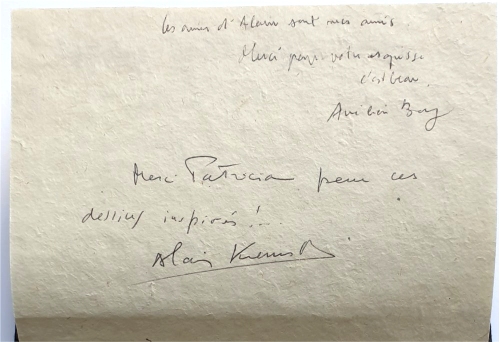 Les amis d'Alain sont mes amis.
Merci pour votre esquisse
c'est beau.
Merci Patricia pour ces
dessins inspirés !...
Alain Kremski